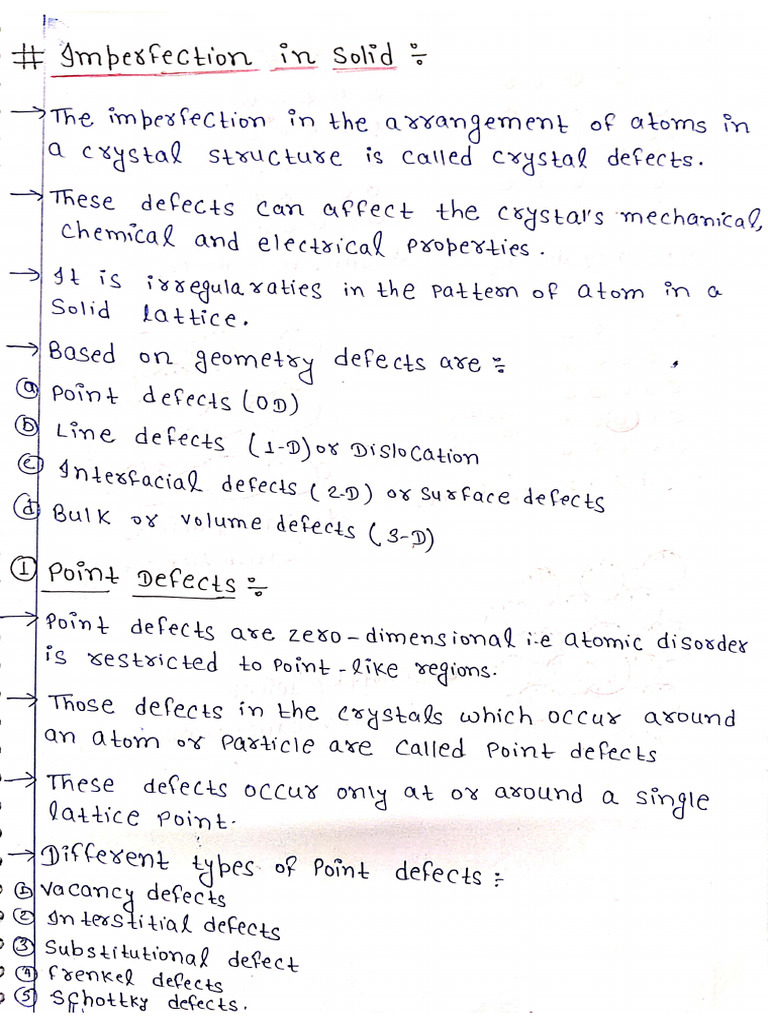 # Imperfection in Solid ÷
→ The imperfection in the arrangement of atoms in
a crystal structure is called crystal defects.
→ These defects can affect the crystal's mechanical,
chemical and electrical properties.
→ It is irregularaties in the pattern of atom in a
Solid lattice.
→ Based on geometry defects are ÷
ⓐ Point defects (0D)
ⓑ Line defects (1-D) or Dislocation
ⓒ Interfacial defects (2-D) or surface defects
ⓓ Bulk or volume defects (3-D)
① Point Defects ÷
→ Point defects are zero-dimensional i.e atomic disorder
is restricted to point-like regions.
→ Those defects in the crystals which occur around
an atom or particle are called point defects
→ These defects occur only at or around a single
lattice point.
→ Different types of point defects ÷
① Vacancy defects
② Interstitial defects
③ Substitutional defect
④ frenkel defects
⑤ Schottky defects.